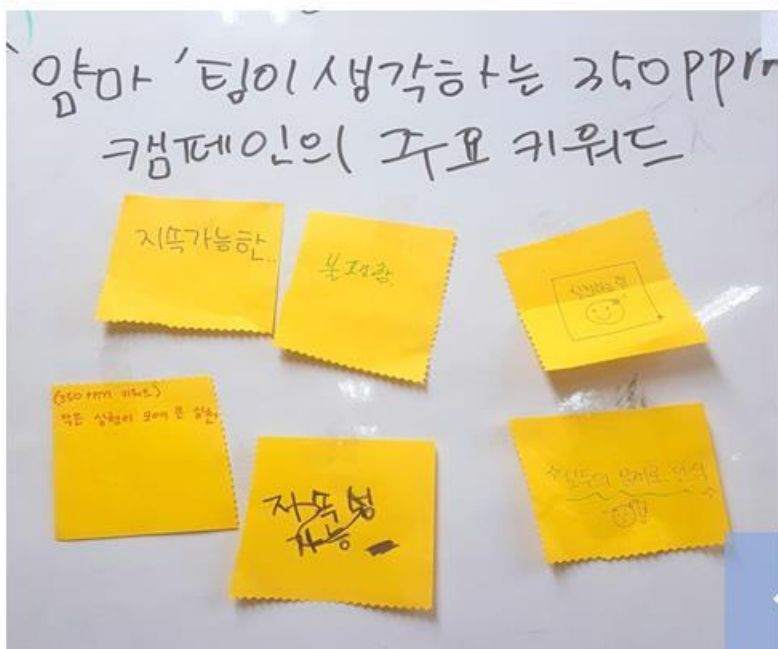 '얌마' 팀이 생각하는 350ppm
캠페인의 주요 키워드
지속가능한..
불편함
실천하는 삶
(350 ppm 키워드)
작은 실천이 모여 큰 실천
지속성
가능
모두의 문제로 인식